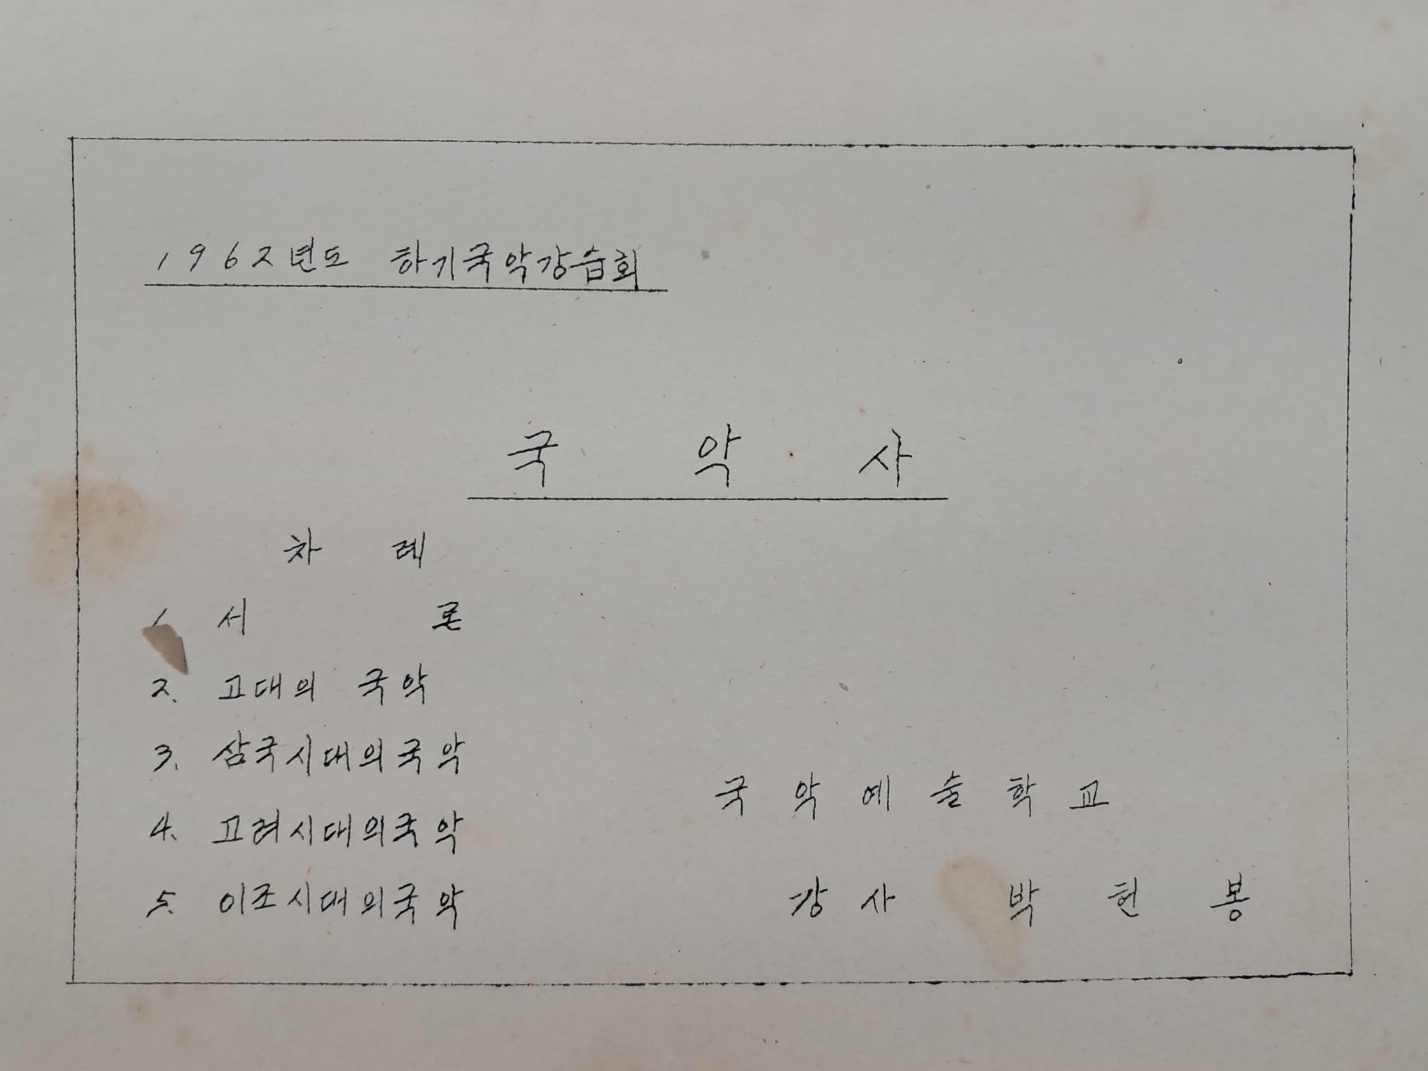 1962년도 하기국악강습회
국 악 사
차 례
1. 서 론
2. 고대의 국악
3. 삼국시대의국악
4. 고려시대의국악
5. 이조시대의국악
국 악 예 술 학 교
강 사 박 헌 봉